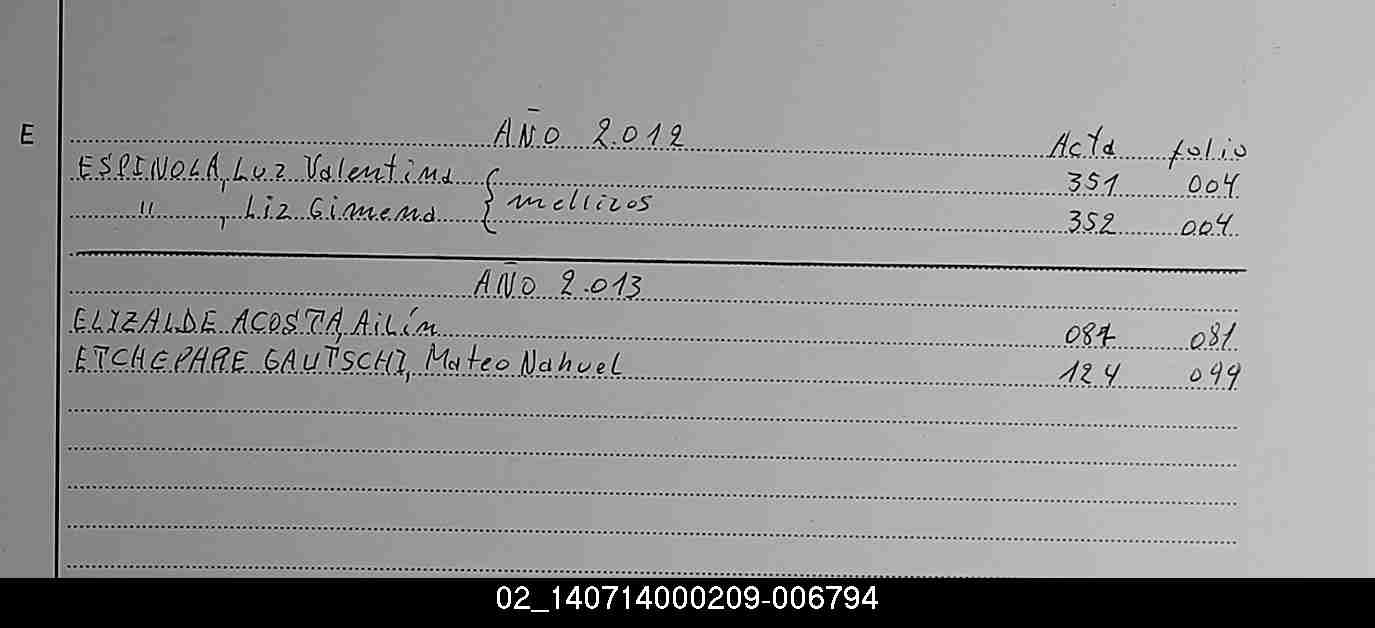 E
AÑO 2.012 Acta folio
ESPINOLA, Luz Valentina 351 004
" , Liz Gimena { mellizos 352 004
AÑO 2.013
ELIZALDE ACOSTA, Ailín 087 081
ETCHEPARE GAUTSCHI, Mateo Nahuel 124 099
02_140714000209-006794